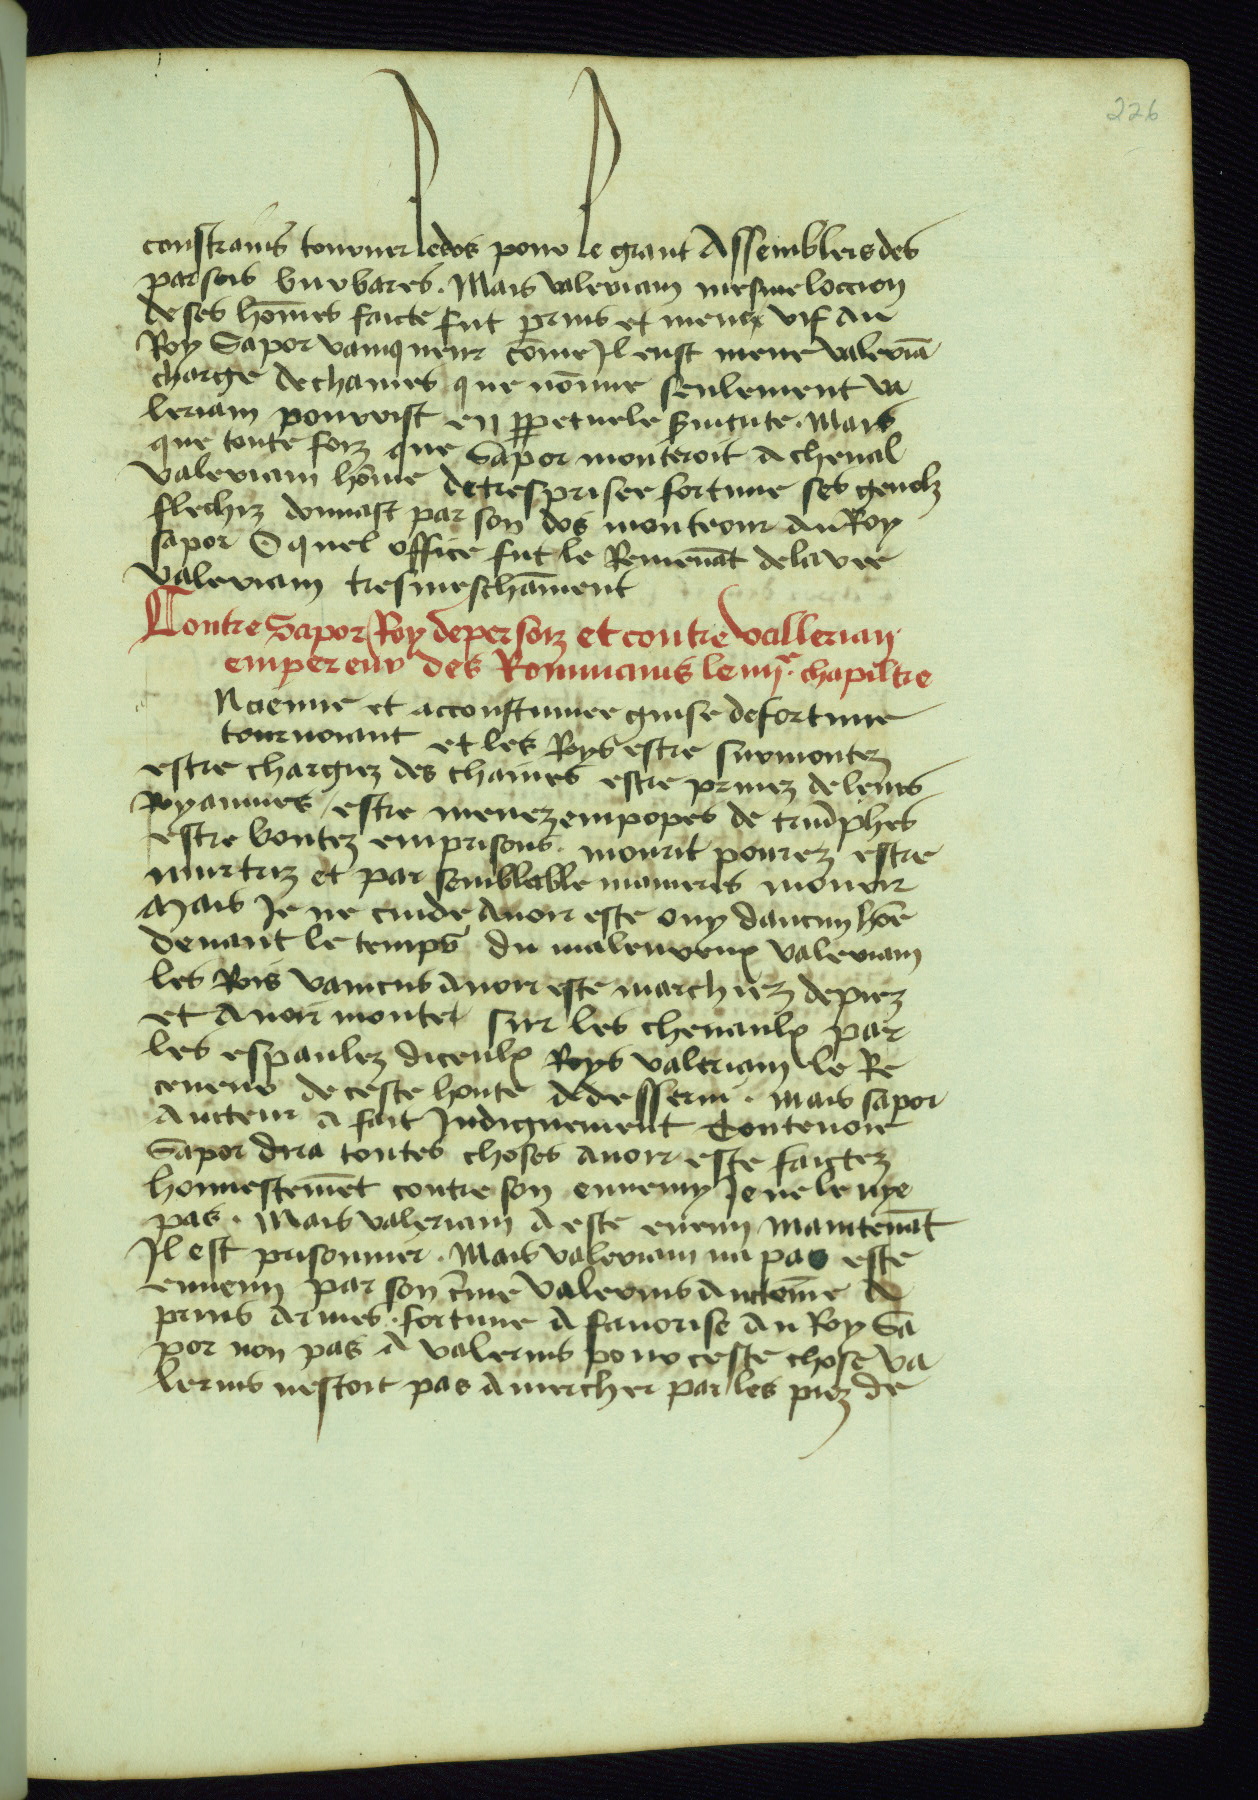 226
constrains tourner le dos pour le grant Assembleis des
parsois barbares . Mais valeriam mesme loccion
de ses hōmes faicte fut prins et mene vif Au
Roy Sapor vainqueur cōme Jl eust mene valeriā
charge de chaines que nōmie seulement va
leriam pourrist en ꝑpetuele s̄uitute . Mais
que toute foiz que Sapor monteroit A cheual
valeriam hōme de tresprisee fortune ses genolz
flechiz donnast par son dos monteour Au Roy
sapor O quel office fut le Remenāt de la vie
valeriam tresmeschāment
Contre Sapor Roy de persoiz et contre vallerian
empereur des Rommains le iiij.e chapiltre
Ncienne et accoustumee guise de fortune
tournoiant et les Roys estre surmontez
estre chargiez des chaines estre priuez de leurs
Royaumes / estre menez em popes de triūphes
estre boutez em prisons . mourit pourez estre
murtriz et par semblable manieres mourir
Mais Je ne cuide Auoir este ouy daucun hōe
deuant le temps du maleureux valeriam
les Rois vaincus Auoir este marchiez de piez
et Auoir monter sur les cheuaulx par
les espaulez diceulx Roys valeriam le Re
ceueur de ceste honte A desserui . Mais sapor
Aucteur A fait Jndignement Contenoir
Sapor dira toutes choses auoir este faictez
honnestemēt contre son ennemy Je ne le nye
pas . Mais valeriam A este enemi maintenāt
Jl est prisonnier . Mais valeriam na pas este
ennemi par son crime valerius Auctōme A
prins Armes . fortune A fauorise Au Roy Sa
por non pas A valerius pour ceste chose va
lerius nestoit pas A mercher par les piez de